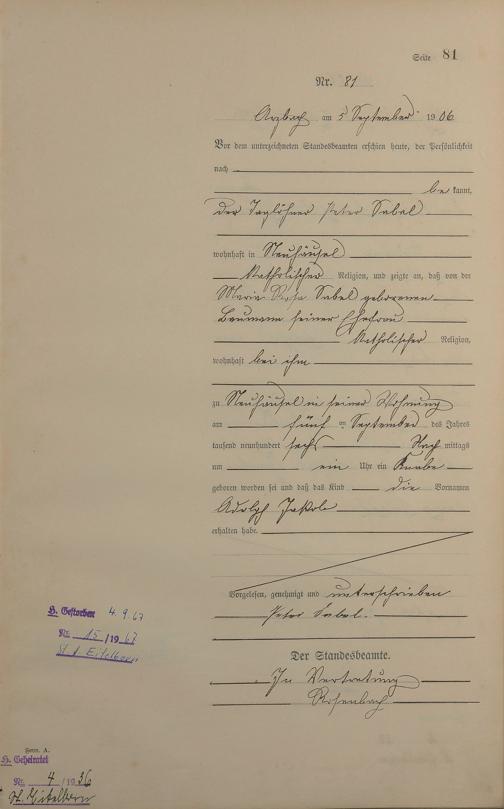 Seite 81
Nr. 81
Arzbach am 5 September 1906
Vor dem unterzeichneten Standesbeamten erschien heute, der Persönlichkeit
nach
be kannt,
der Taglöhner Peter Sabel
wohnhaft in Neuhäusel
katholischer Religion, und zeigte an, daß von der
Maria Rosa Sabel geborenen
Baumann seiner Ehefrau
katholischer Religion,
wohnhaft bei ihm
zu Neuhäusel in seiner Wohnung
am fünf en September des Jahres
tausend neunhundert sechs Nach mittags
um ein Uhr ein Knabe
geboren worden sei und daß das Kind die Vornamen
Adolph Jakob
erhalten habe.
Vorgelesen, genehmigt und unterschrieben
Peter Sabel.
Der Standesbeamte.
In Vertretung
Rosenbach
H. Gestorben 4.9.67
Nr. 15/1967
St. A. Eitelborn
Form. A.
H. Geheiratet
Nr. 4/1936
St. Eitelborn